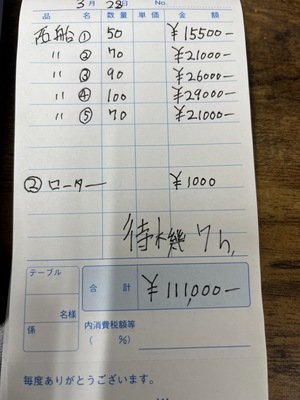 3月28日 No.
品名 数量 単価 金額
西船① 50 ¥15500-
〃 ② 70 ¥21000-
〃 ③ 90 ¥26000-
〃 ④ 100 ¥29000-
〃 ⑤ 70 ¥21000-
② ローター ¥1000
待機 7h,
テーブル
合計 ¥111,000-
名様
係
内消費税額等
( %)
毎度ありがとうございます。